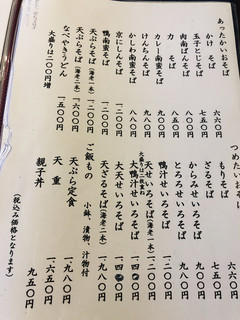 あったかいおそば
かけそば 六六〇円
玉子とじそば 七五〇円
肉南ばんそば 八八〇円
力そば 八五〇円
カレー南蛮そば 九五〇円
けんちんそば
かしわ南蛮そば
京にしんそば 一二〇〇円
鴨南蛮そば 一二〇〇円
天ぷらそば(海老一本) 一二〇〇円
天ぷらそば(海老二本) 一六〇〇円
なべやきうどん 一五〇〇円
大盛りは二〇〇円増
つめたいおそば
もりそば 六六〇円
ざるそば 七五〇円
からみせいろそば 九五〇円
とろろせいろそば 九八〇円
鴨汁せいろそば 一二〇〇円
天せいろそば(海老一本)
大鴨せいろそば
大天せいろそば
天ざるそば(海老二本) 一九八〇円
ご飯もの 小鉢、漬物、汁物付
天ぷら定食 一九八〇円
天重 一六五〇円
親子丼 九五〇円
(税込み価格となります)